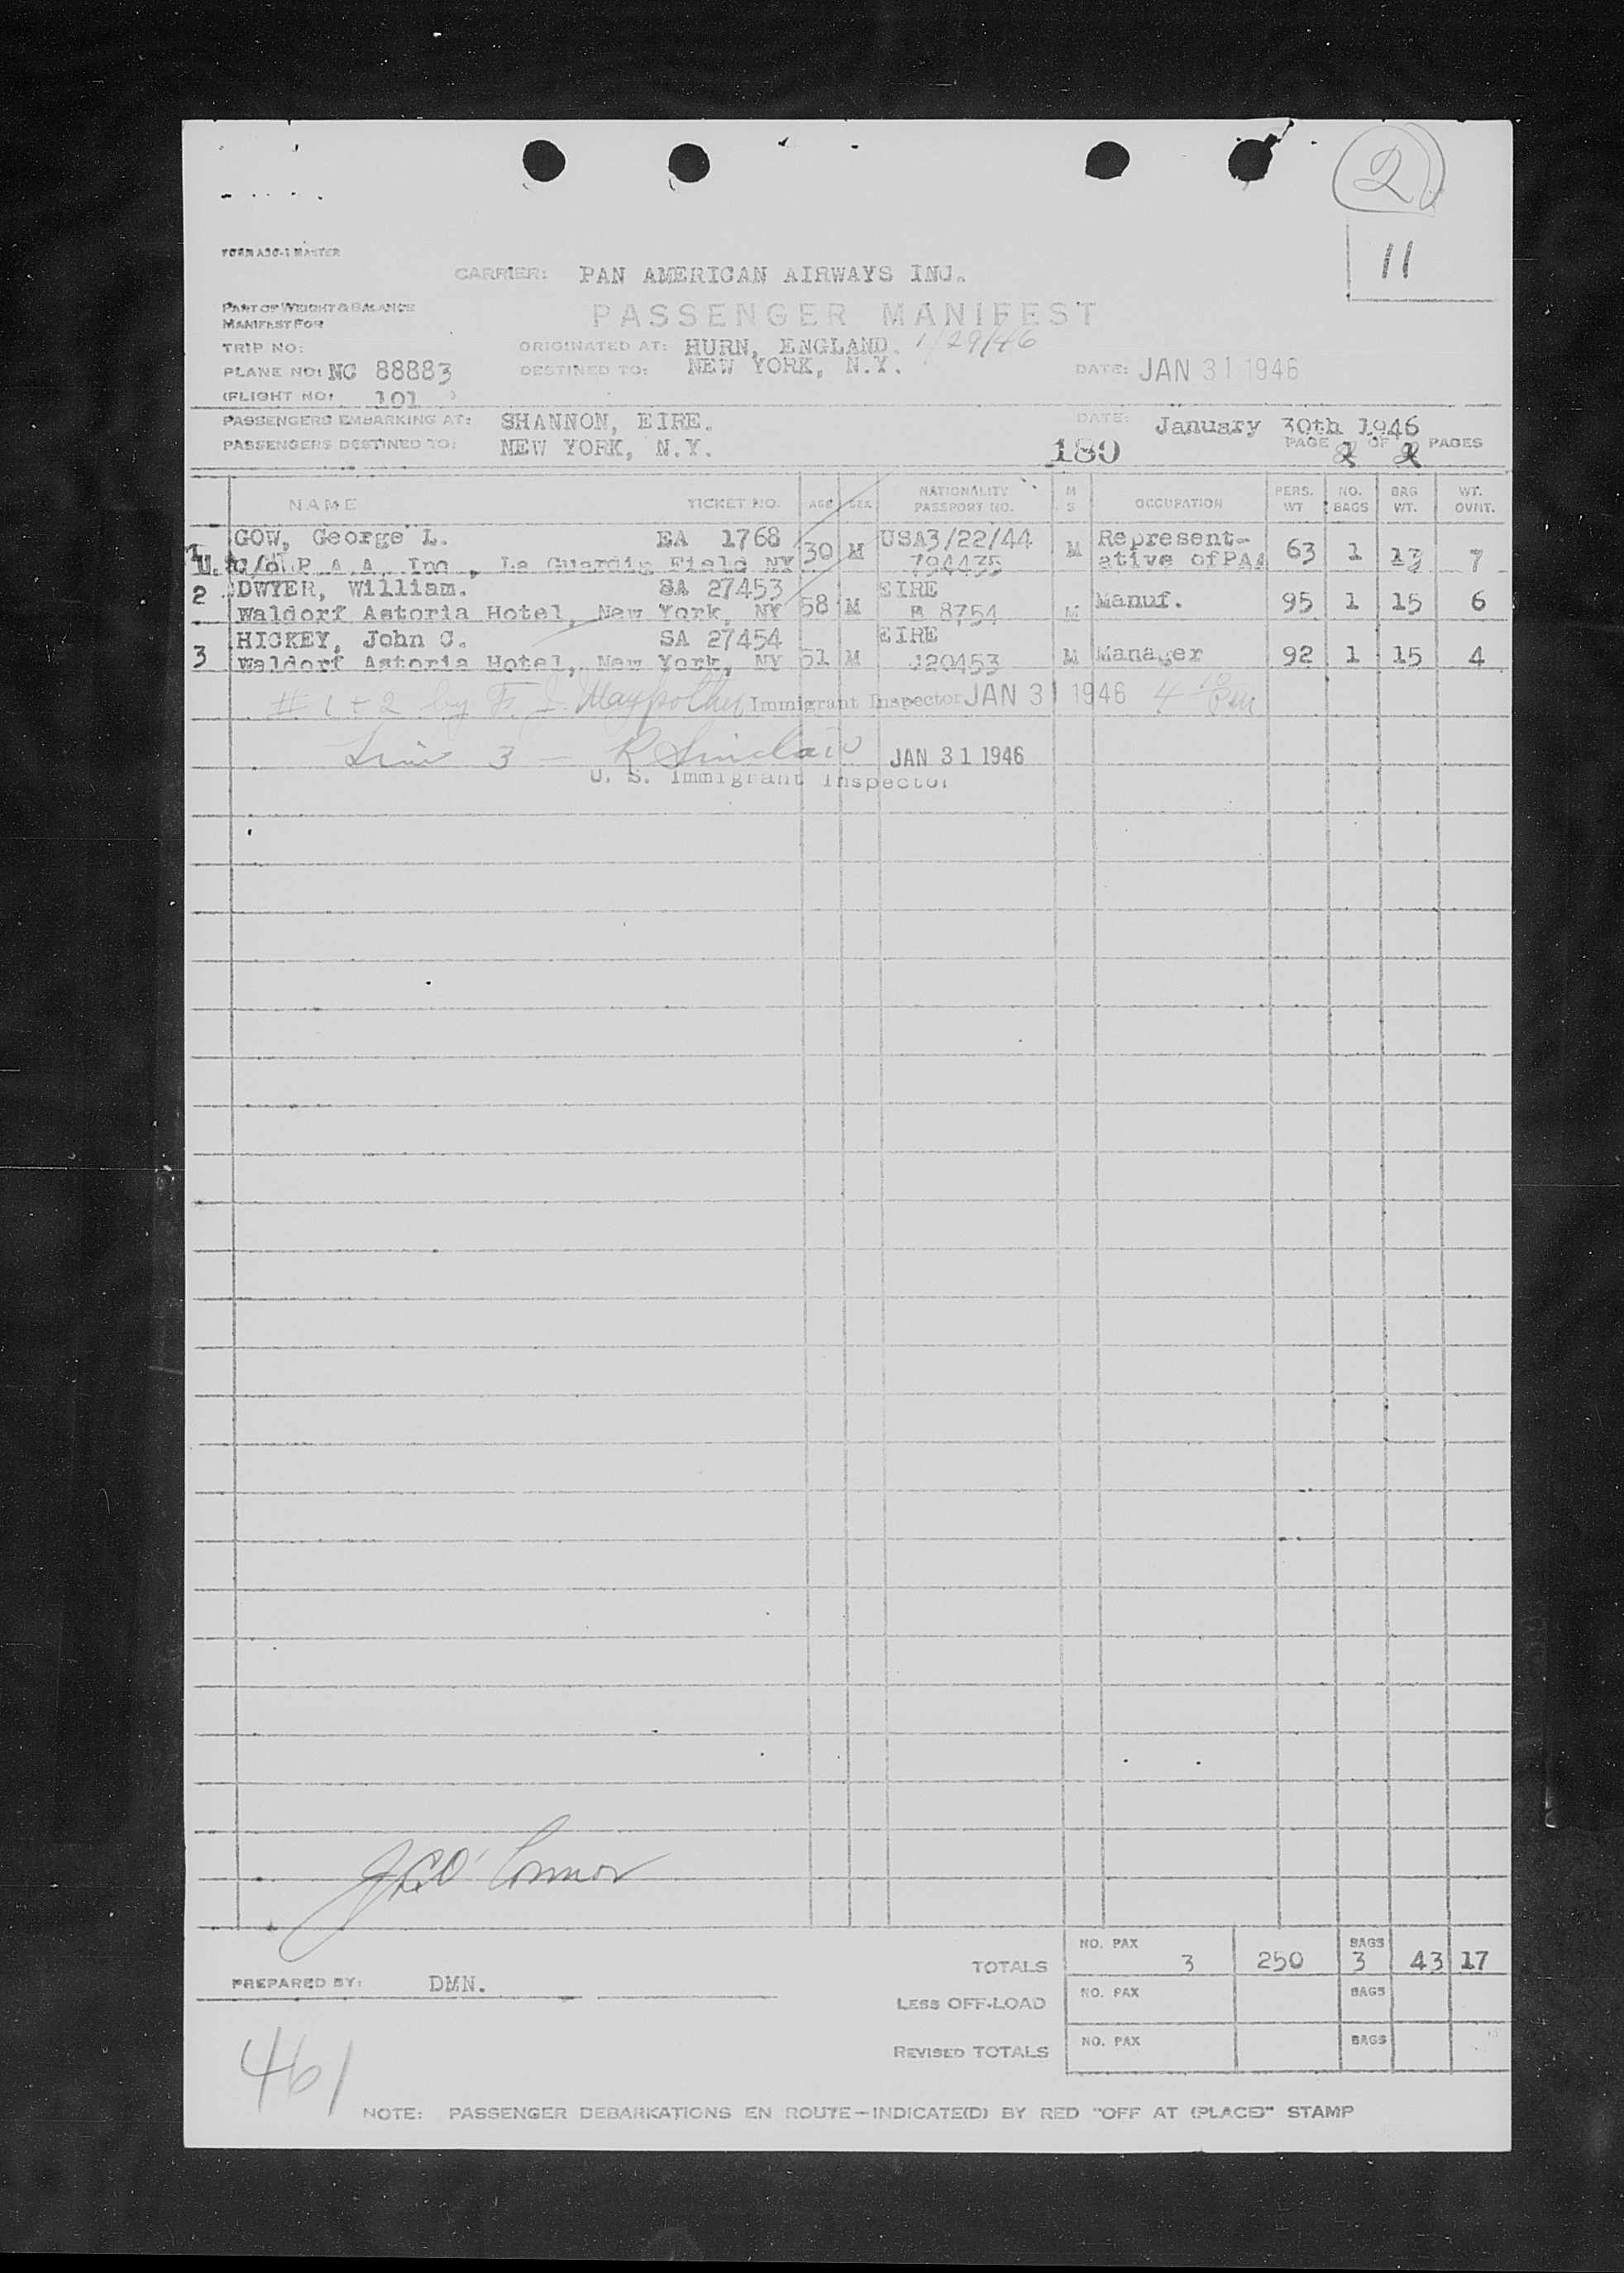 2
11
FORM ASC-1 MASTER
CARRIER: PAN AMERICAN AIRWAYS INC.
PART OF WEIGHT & BALANCE
MANIFEST FOR
PASSENGER MANIFEST
TRIP NO:
ORIGINATED AT: HURN, ENGLAND. 1/29/46
PLANE NO: NC 88883
DESTINED TO: NEW YORK, N.Y.
DATE: JAN 31 1946
(FLIGHT NO: 101 )
PASSENGERS EMBARKING AT: SHANNON, EIRE.
DATE: January 30th 1946
PASSENGERS DESTINED TO: NEW YORK, N.Y.
180
PAGE 2 OF 2 PAGES
NAME TICKET NO. AGE SEX NATIONALITY PASSPORT NO. M S OCCUPATION PERS. WT NO. BAGS BAG WT. WT. OVNT.
GOW, George L. EA 1768 USA3/22/44 Represent-
c/o P.A.A. Inc., La Guardia Field NY 30 M 794435 M ative of PAA 63 1 13 7
2 DWYER, William. SA 27453 EIRE
Waldorf Astoria Hotel, New York, NY 58 M B 8754 M Manuf. 95 1 15 6
HICKEY, John C. SA 27454 EIRE
3 Waldorf Astoria Hotel, New York, NY 51 M J20453 M Manager 92 1 15 4
# 1 + 2 by F. J. Immigrant Inspector JAN 31 1946 4 10 pm
Line 3 - R Sinclair JAN 31 1946
U. S. Immigrant Inspector
J C O'Connor
TOTALS NO. PAX 3 250 BAGS 3 43 17
PREPARED BY: DMN.
LESS OFF-LOAD NO. PAX BAGS
REVISED TOTALS NO. PAX BAGS
461
NOTE: PASSENGER DEBARKATIONS EN ROUTE—INDICATE(D) BY RED "OFF AT (PLACE)" STAMP